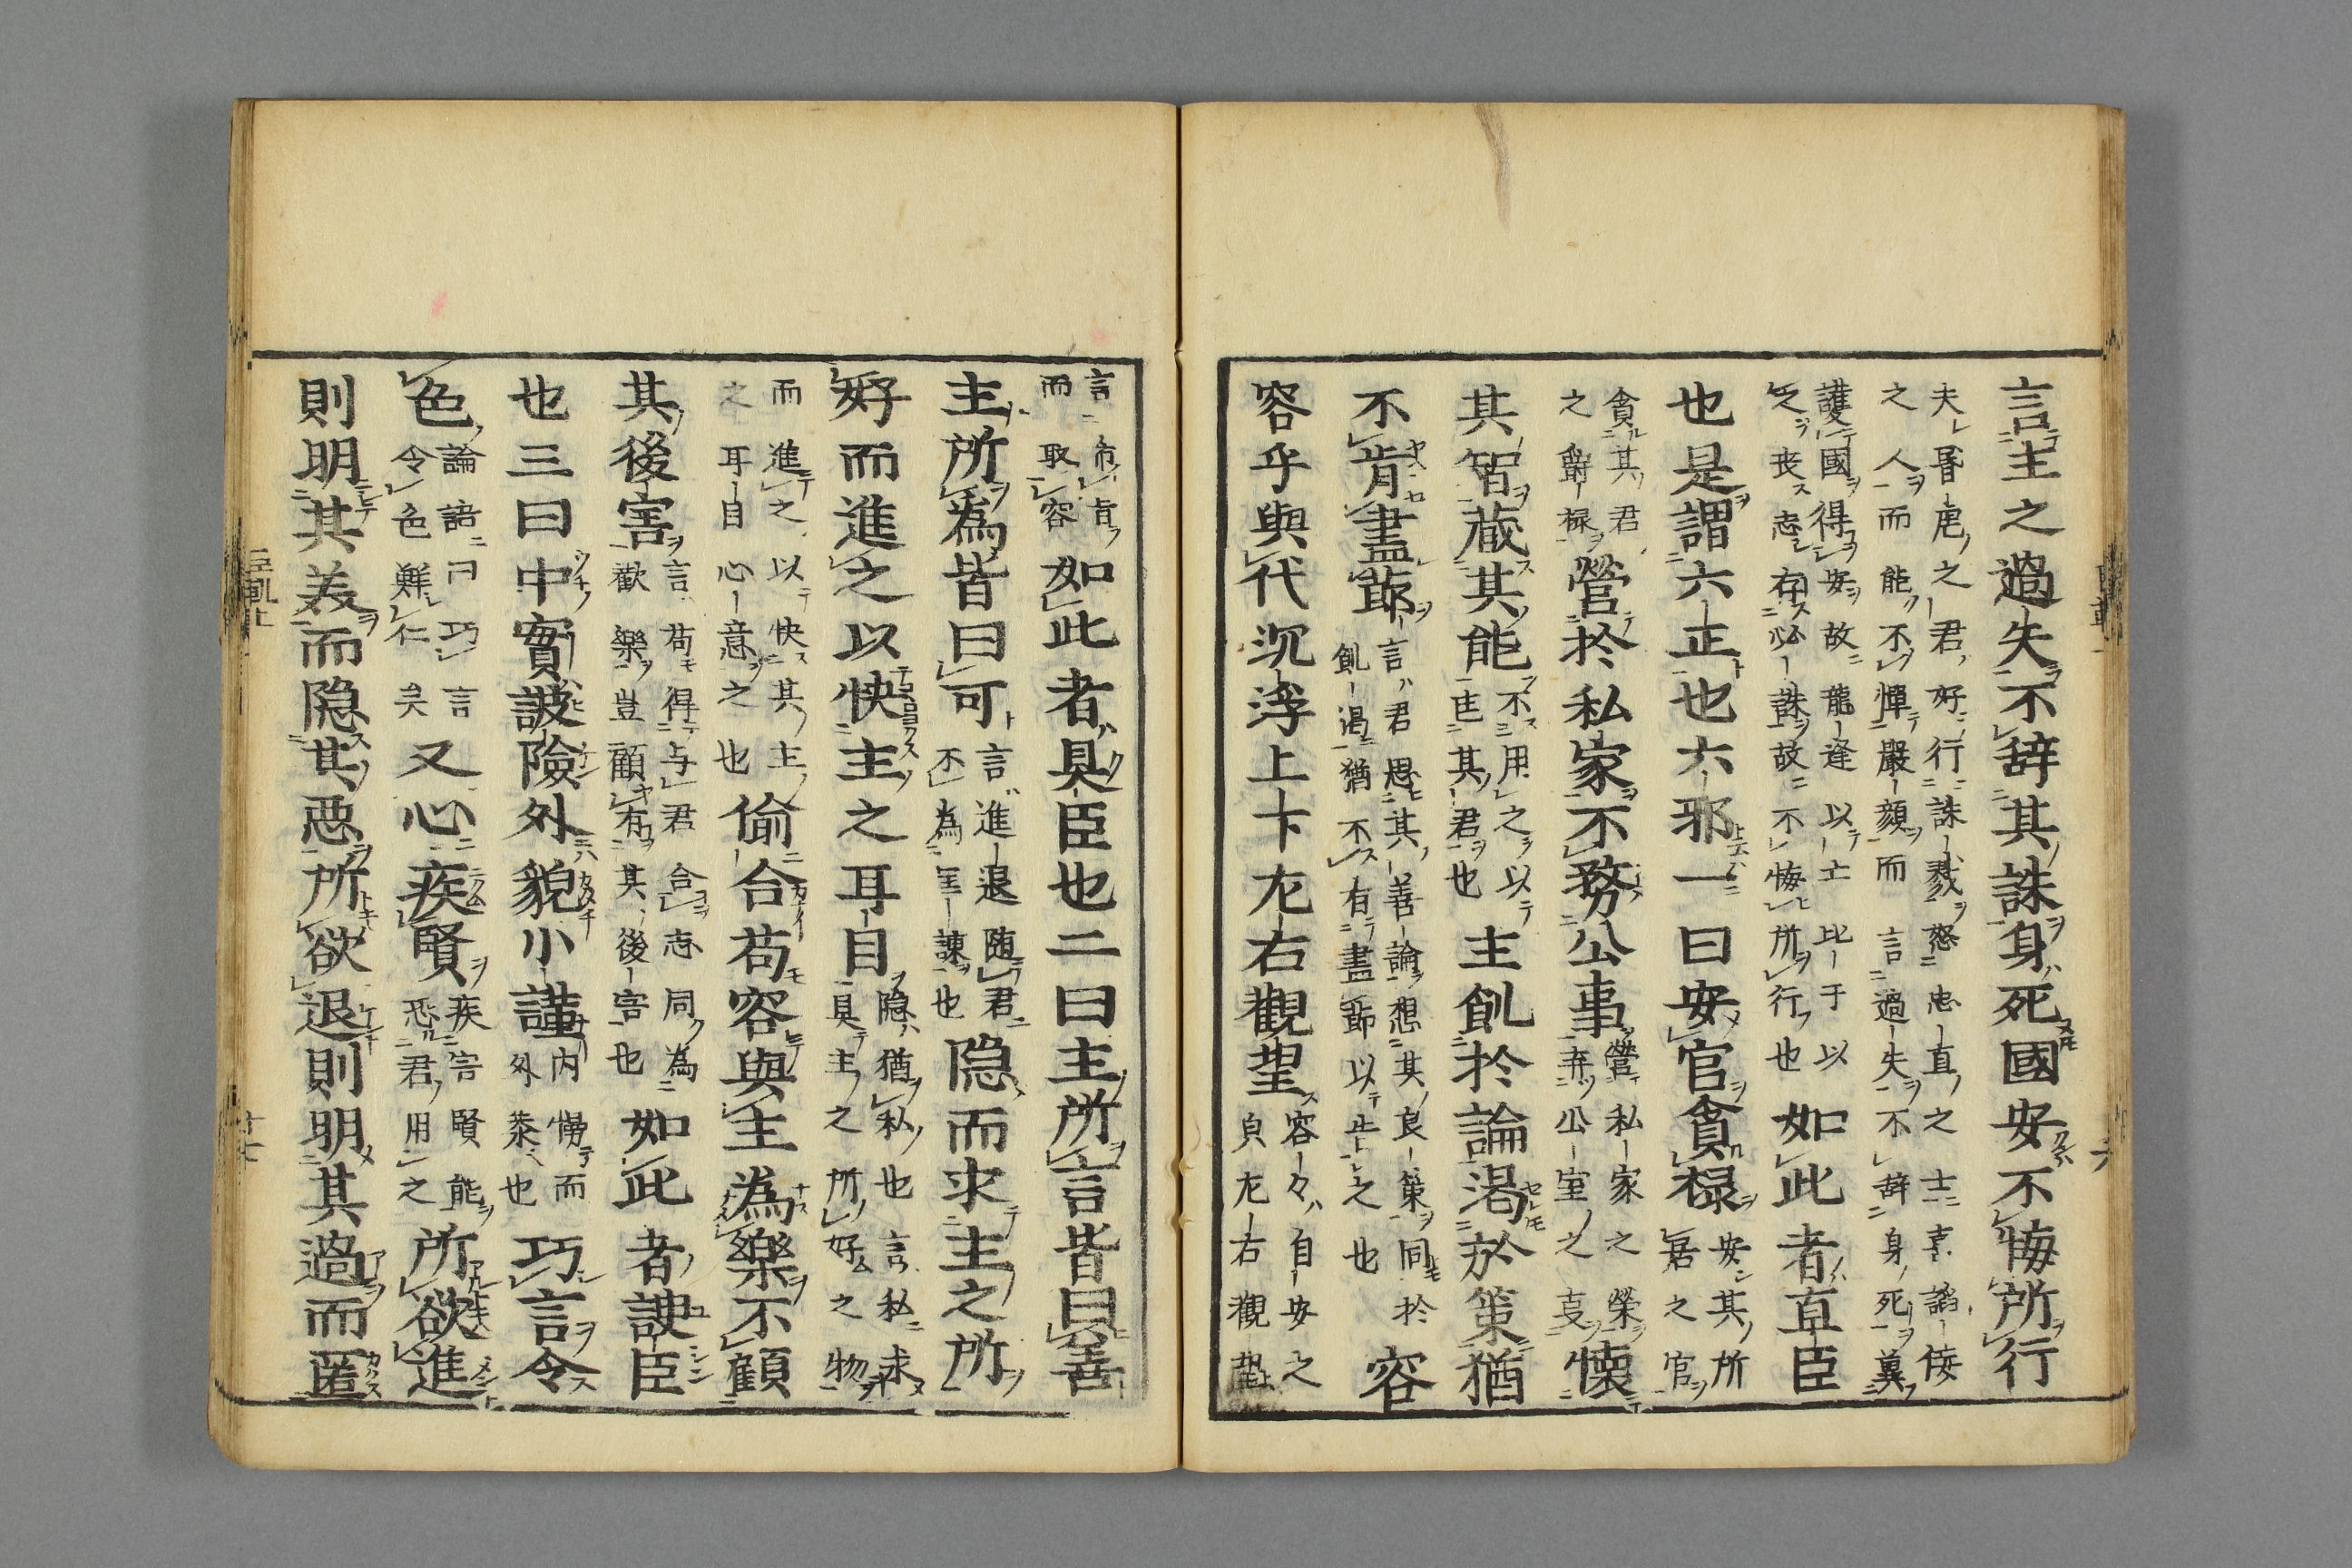 言主之過失不辞其誅身死國安不悔所行
夫昬虐之君好行誅戮怒忠直之士喜謟佞
之人而能不憚嚴顔而言過失不辞身死兾
護國得安故龍逢以亡比于以
乏丧志存公誅故不悔所行也
如此者直臣
也是謂六正也六邪一曰安官貪禄
安其所
居之官
貪其君
之爵禄
營於私家不務公事
營私家之榮
弃公室之
懐
其智蔵其能
不用之以
其君也
主飢於論渇於策猶
不肯盡節
言君思其善論想其良策同於
飢渇猶不有盡節以止之也
容
容乎與代沉浮上下左右觀望
容々自安之
皃左右觀望
言
而取容
如此者具臣也二曰主所言皆曰善
主所為皆曰可
言進退随君
不為匡諌也
隠而求主之所
好而進之以快主之耳目
隠猶私也言私求
具主之所好之物
而進之以快其主
之耳目心意之也
偷合苟容與主為樂不顧
其後害
言苟得与君合志同為
歡樂豈顧有其後害也
如此者諛臣
也三曰中實詖險外貌小謹
内慢而
外恭也
巧言令
色
論語曰巧言
令色鮮仁矣
又心疾賢
疾害賢能
恐君用之
所欲進
則明其美而隠其悪所欲退則明其過而匿